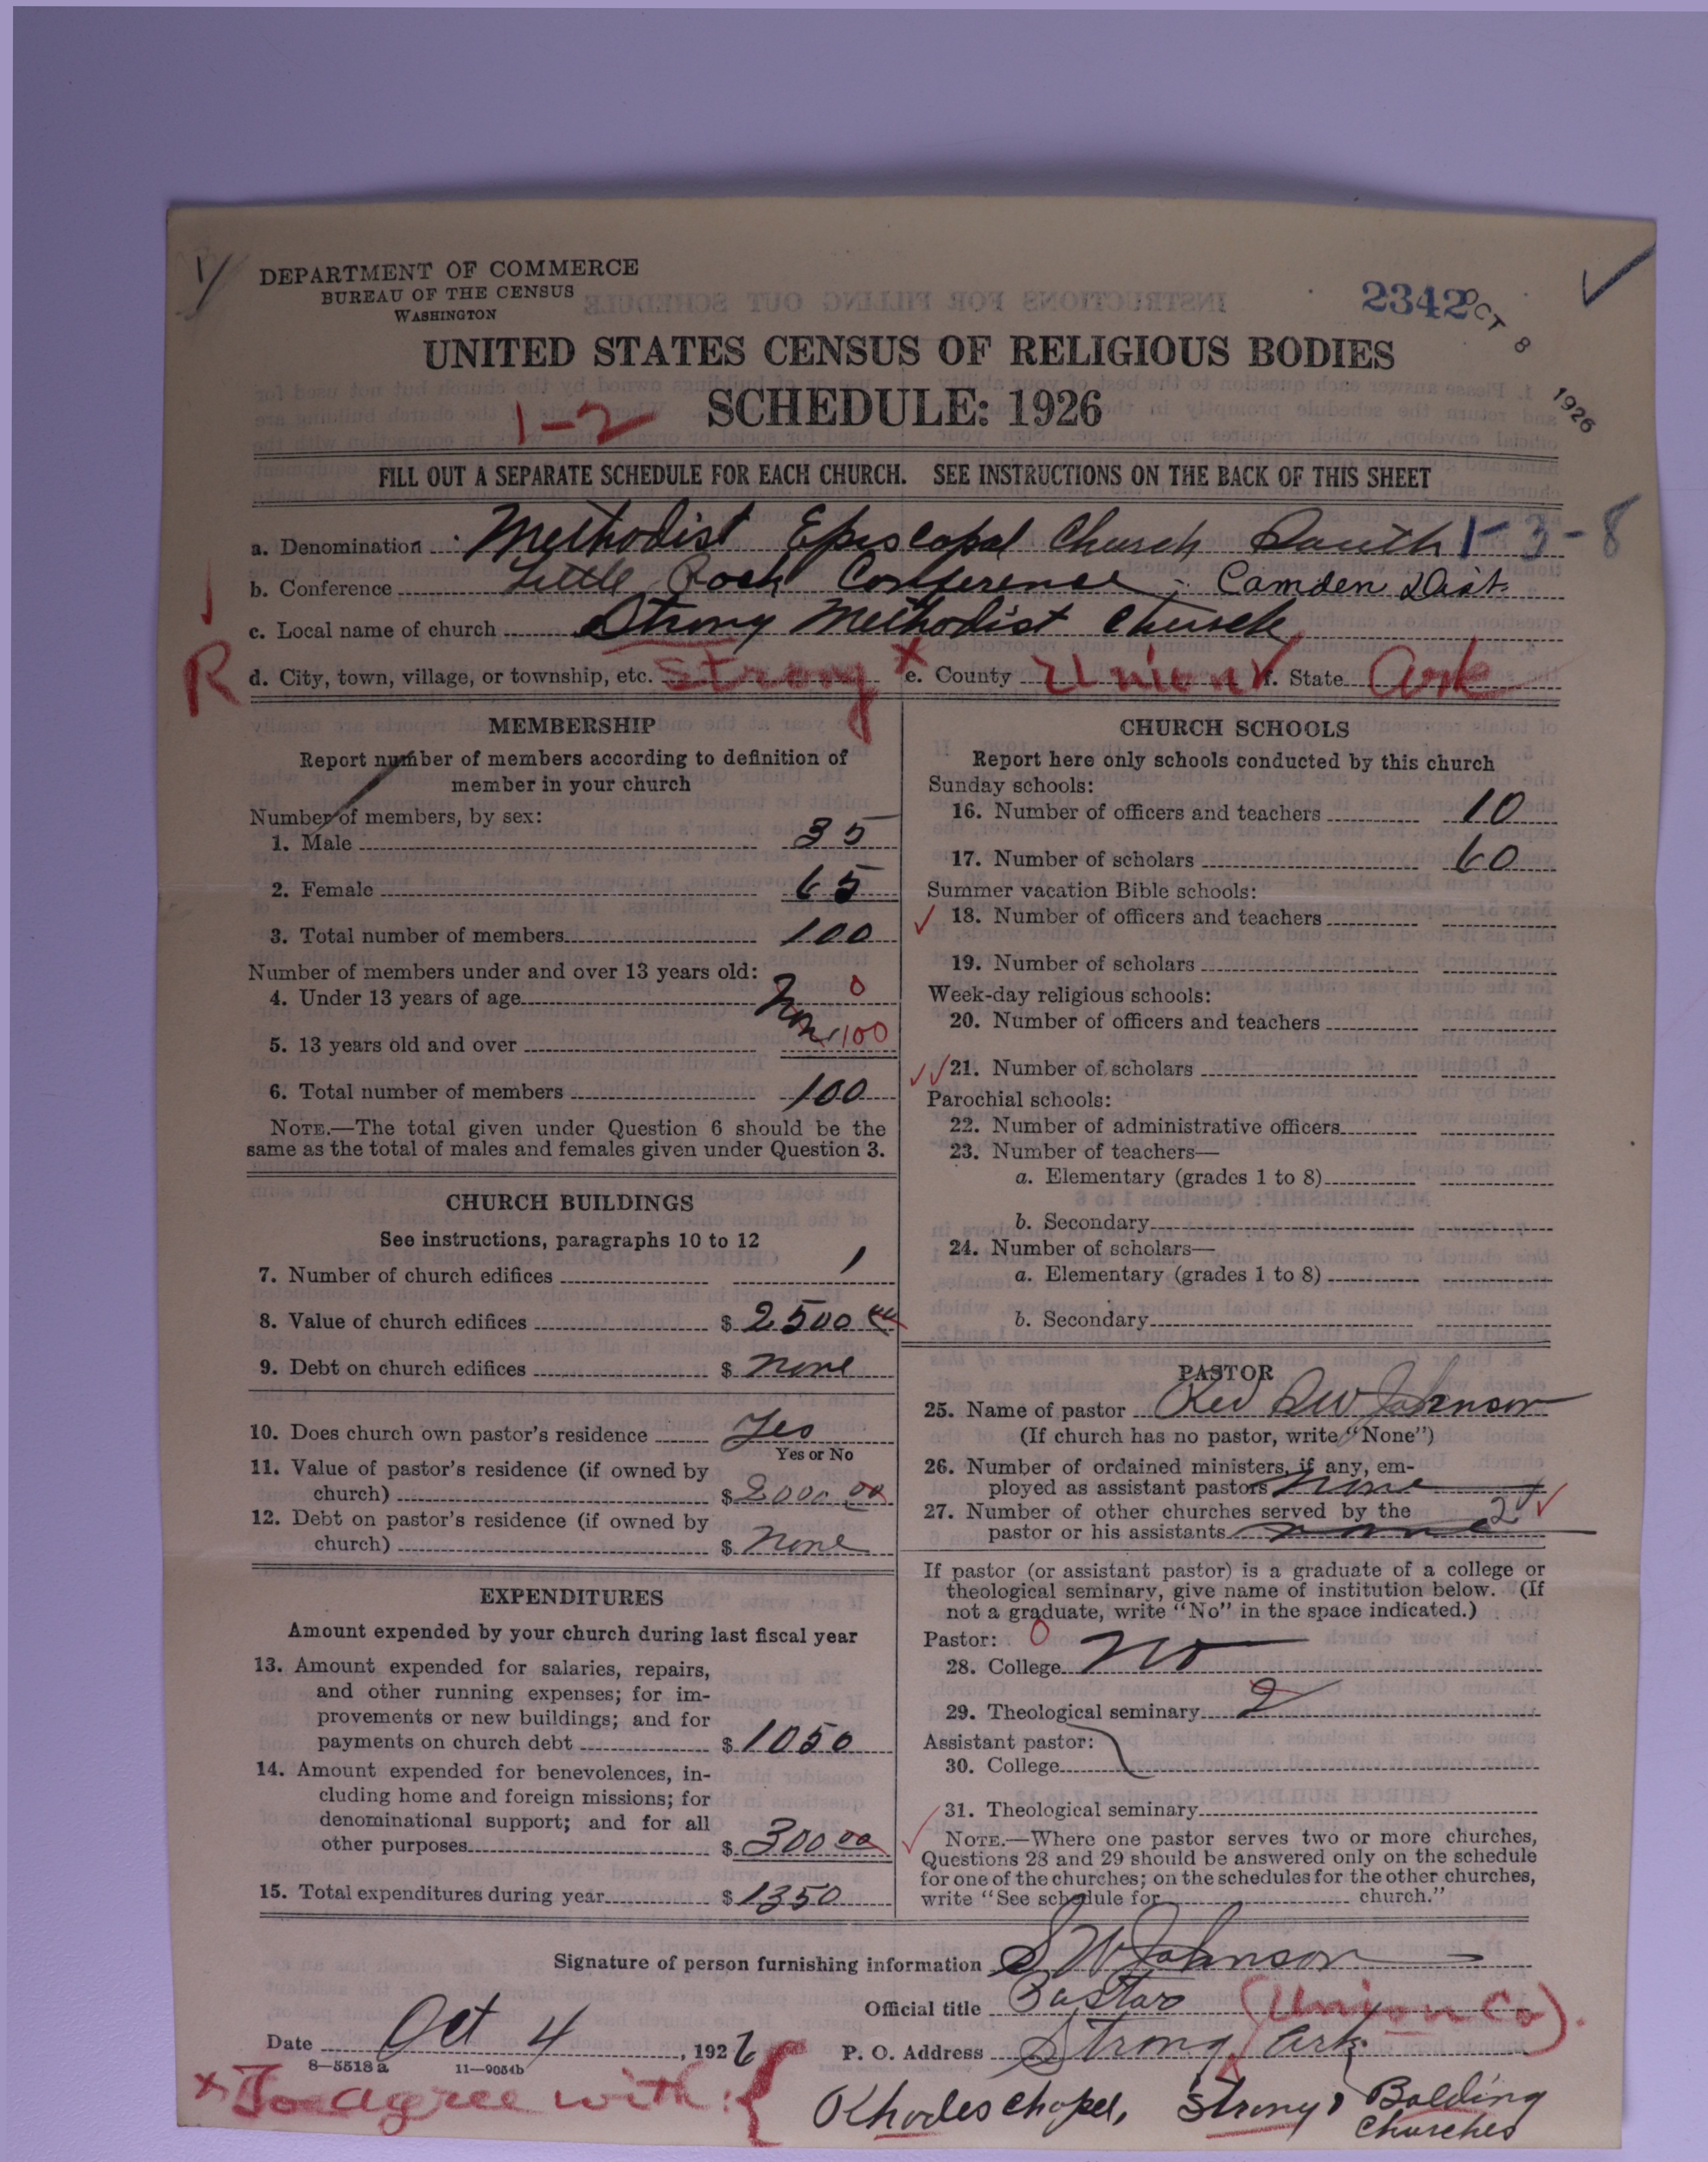 DEPARTMENT OF COMMERCE
BUREAU OF THE CENSUS
WASHINGTON
2342
OCT 8 1926
UNITED STATES CENSUS OF RELIGIOUS BODIES
SCHEDULE: 1926
1-2
FILL OUT A SEPARATE SCHEDULE FOR EACH CHURCH. SEE INSTRUCTIONS ON THE BACK OF THIS SHEET
a. Denomination Methodist Episcopal Church South 1-3-8
b. Conference Little Rock Conference - Camden Dist.
c. Local name of church Strong Methodist Church
R d. City, town, village, or township, etc. Strong x e. County Union f. State Ark
MEMBERSHIP
Report number of members according to definition of
member in your church
Number of members, by sex:
1. Male 35
2. Female 65
3. Total number of members 100
Number of members under and over 13 years old:
4. Under 13 years of age None 0
5. 13 years old and over 100
6. Total number of members 100
NOTE.—The total given under Question 6 should be the
same as the total of males and females given under Question 3.
CHURCH BUILDINGS
See instructions, paragraphs 10 to 12
7. Number of church edifices 1
8. Value of church edifices $ 2500 00
9. Debt on church edifices $ none
10. Does church own pastor's residence Yes
Yes or No
11. Value of pastor's residence (if owned by
church) $ 2000 00
12. Debt on pastor's residence (if owned by
church) $ None
EXPENDITURES
Amount expended by your church during last fiscal year
13. Amount expended for salaries, repairs,
and other running expenses; for im-
provements or new buildings; and for
payments on church debt $ 1050
14. Amount expended for benevolences, in-
cluding home and foreign missions; for
denominational support; and for all
other purposes $ 300 00
15. Total expenditures during year $ 1350
CHURCH SCHOOLS
Report here only schools conducted by this church
Sunday schools:
16. Number of officers and teachers 10
17. Number of scholars 60
Summer vacation Bible schools:
18. Number of officers and teachers
19. Number of scholars
Week-day religious schools:
20. Number of officers and teachers
21. Number of scholars
Parochial schools:
22. Number of administrative officers
23. Number of teachers—
a. Elementary (grades 1 to 8)
b. Secondary
24. Number of scholars—
a. Elementary (grades 1 to 8)
b. Secondary
PASTOR
25. Name of pastor Rev S W Johnson
(If church has no pastor, write "None")
26. Number of ordained ministers, if any, em-
ployed as assistant pastors None
27. Number of other churches served by the
pastor or his assistants none 2
If pastor (or assistant pastor) is a graduate of a college or
theological seminary, give name of institution below. (If
not a graduate, write "No" in the space indicated.)
Pastor: 0
28. College No
29. Theological seminary 2
Assistant pastor:
30. College
31. Theological seminary
NOTE.—Where one pastor serves two or more churches,
Questions 28 and 29 should be answered only on the schedule
for one of the churches; on the schedules for the other churches,
write "See schedule for church."
Signature of person furnishing information S W Johnson
Official title Pastor (Union Co).
Date Oct 4, 1926 P. O. Address Strong Ark.
8—5518 a 11—9054b
x To agree with: { Rhodes chapel, Strong, Bolding
Churches